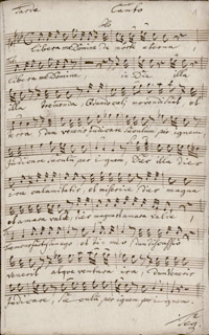 Canto
Libera me Domine de morte aeterna,
Libera me Domine, in Die illa
illa tremenda, Quando coeli movendi sunt, et
terra. Dum veneris judicare saeculum per ignem,
judicare saeculum per ignem, Dies illa dies
irae calamitatis, et miseriae dies magna
et amara valde, dies magna et amara valde,
et timeo, dum discussio
venerit atque ventura ira, dum veneris
judicare, saeculum per ignem per ignem.